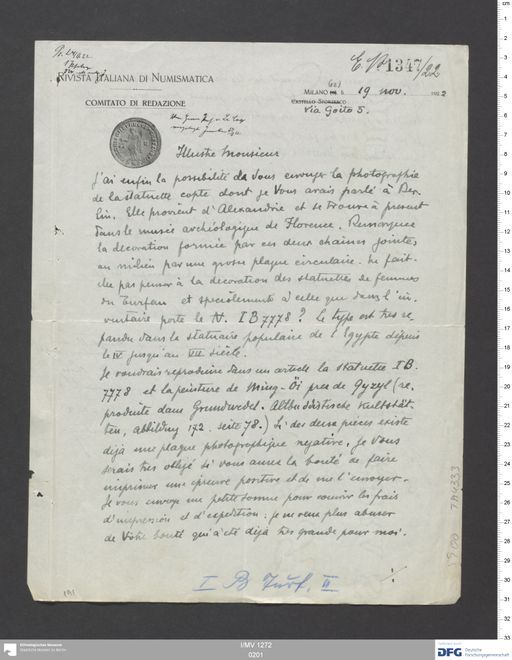 E. No 1347/22
RIVISTA ITALIANA DI NUMISMATICA
COMITATO DI REDAZIONE
MILANO 19 nov. 1922
CASTELLO SFORZESCO
Via Goito 5.
Illustre Monsieur
J'ai enfin la possibilité de Vous envoyer la photographie
de la statuette copte dont je Vous avais parlé à Ber-
lin. Elle provient d'Alexandrie et se trouve à présent
dans le musée archéologique de Florence. Remarquez
la décoration formée par ces deux chaînes jointes
au milieu par une grosse plaque circulaire. Ne fait-
elle pas penser à la décoration des statuettes de femmes
du Turfan et specialement à celle que dans l'in-
ventaire porte le N. I B 7778? Le type est très re-
pandu dans la statuaire populaire de l'Egypte depuis
le IV jusqu'au VII siècle.
Je voudrais reproduire dans un article la statuette I B.
7778 et la peinture de Ming-Öi pres de Qyzyl (re-
produite dans Grundwedel. Altbuddistische Kultstät-
ten, abbildung 172. seite 78.) Si des deux pièces existe
déjà une plaque photographique negative, je Vous
serais très obligé si vous aurez la bonté de faire
imprimer une épreuve positive et de me l'envoyer.
Je vous envoye une petite somme pour couvrir les frais
d'impression et d'expedition: je ne veux plus abuser
de Votre bonté qui a été déjà très grande pour moi.
./.
I B Turf. II
191
I/MV 1272
0201
Ethnologisches Museum
Staatliche Museen zu Berlin
DFG Deutsche
Forschungsgemeinschaft